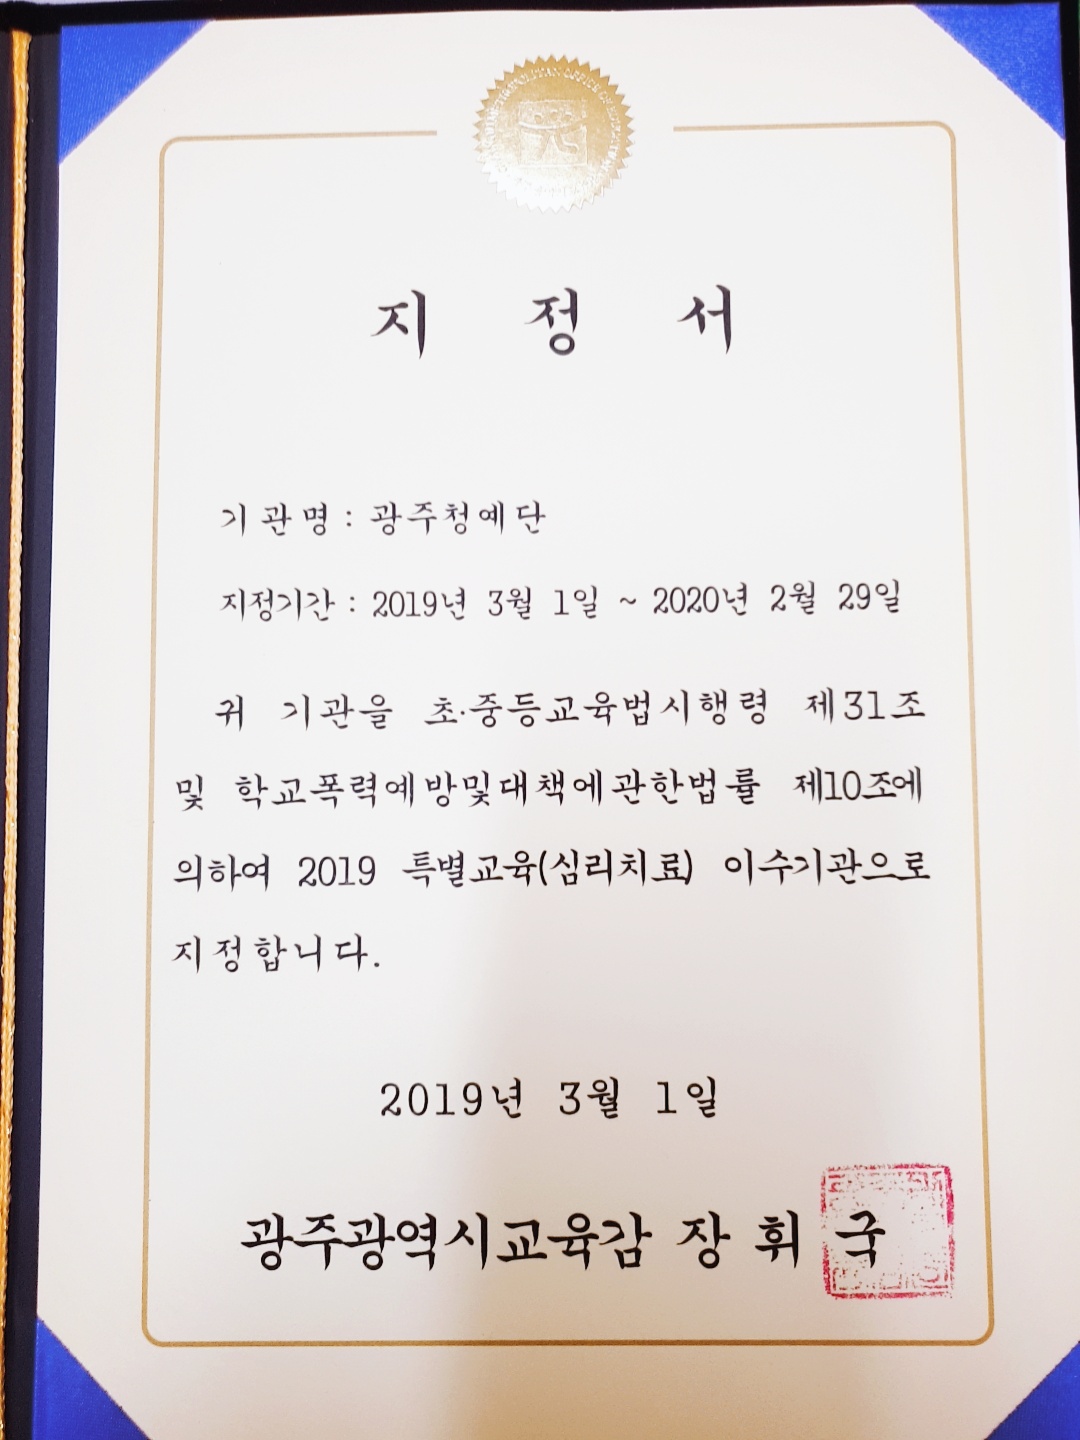 지 정 서
기관명 : 광주청예단
지정기간 : 2019년 3월 1일 ~ 2020년 2월 29일
귀 기관을 초·중등교육법시행령 제31조
및 학교폭력예방및대책에관한법률 제10조에
의하여 2019 특별교육(심리치료) 이수기관으로
지정합니다.
2019년 3월 1일
광주광역시교육감 장 휘 국